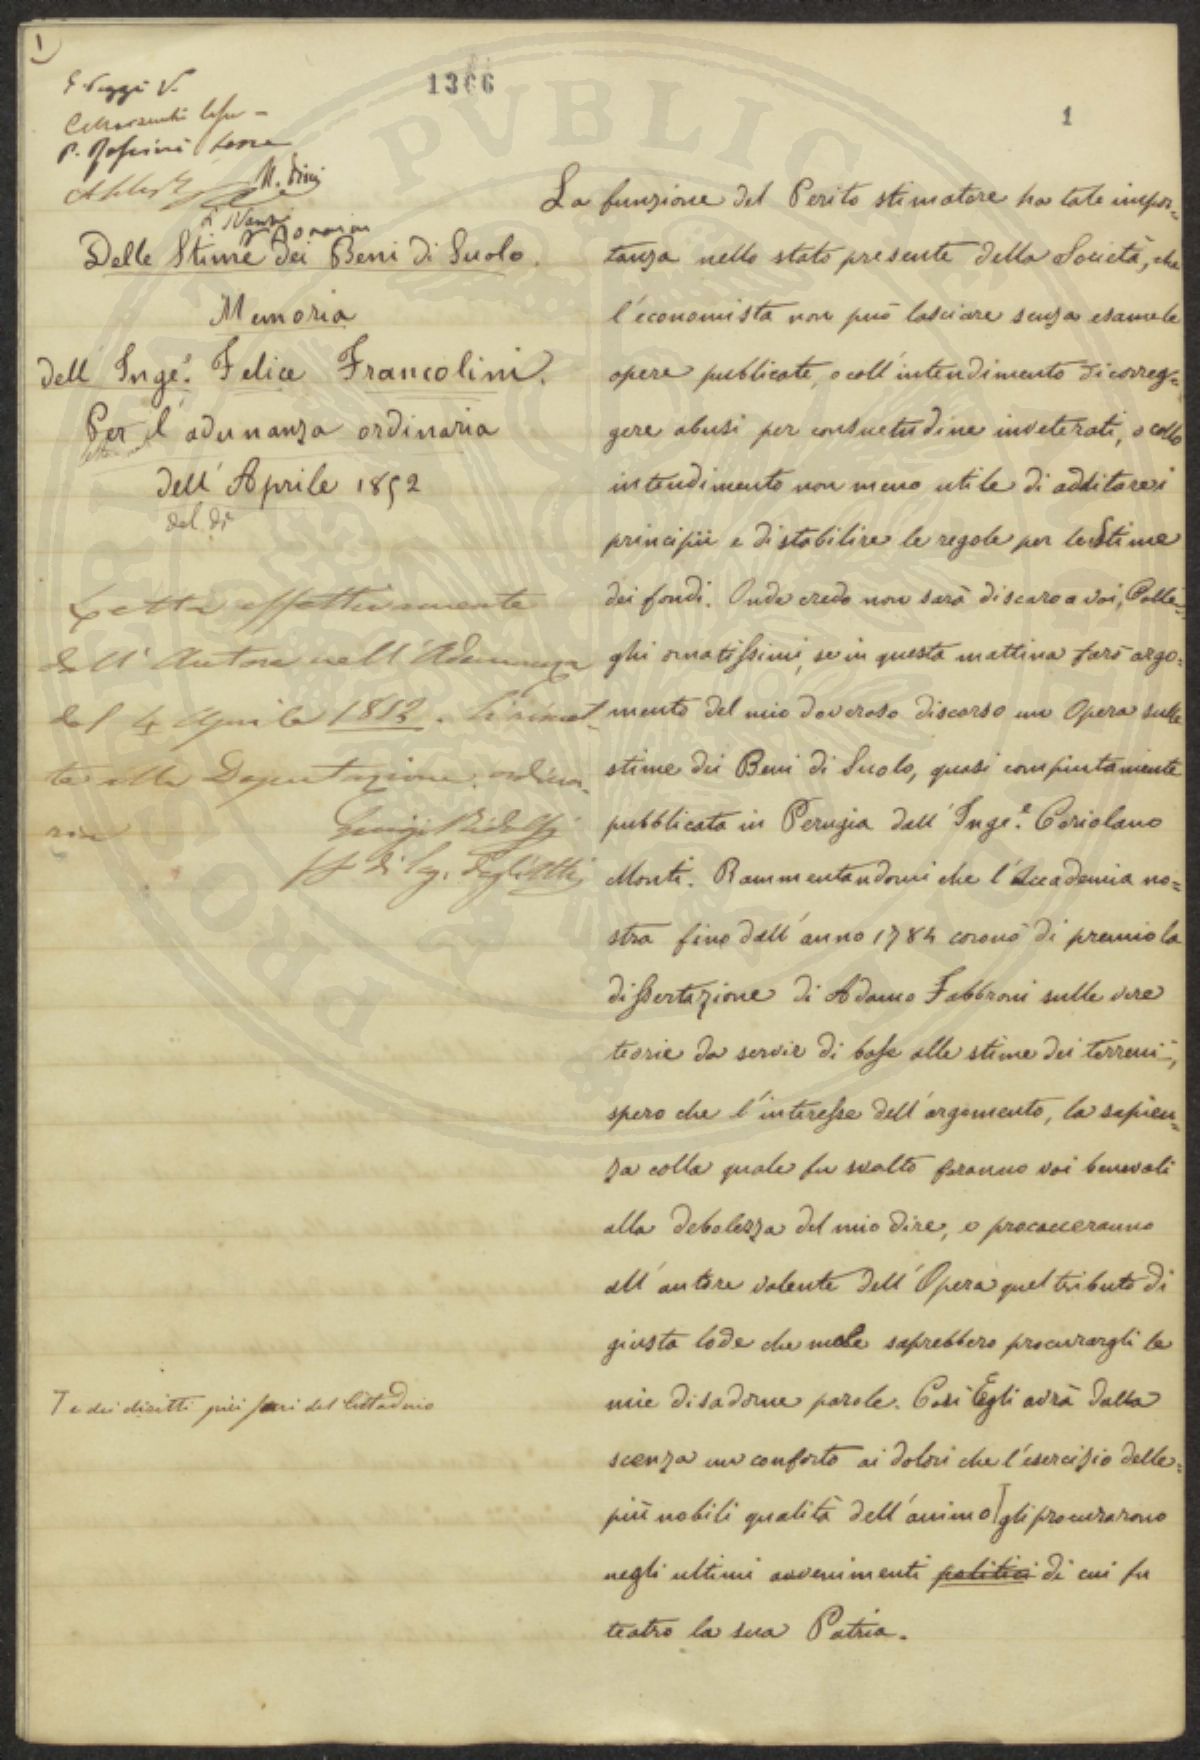 1
1366
1
Delle Stime dei Beni di Suolo.
Memoria
dell' Inge.e Felice Francolini.
Per l'adunanza ordinaria
dell' Aprile 1852
del dì
Letta effettivamente
dall' Autore nell' Adunanza
del 4 Aprile 1852. 
te alla Deputazione ordina-
ria
Luigi Ridolfi
degli Atti
T e dei diritti più del Cittadino
La funzione del Perito stimatore ha tale impor-
tanza nello stato presente della Società, che
l'economista non può lasciare senza esame le
opere pubblicate, o coll'intendimento di correg=
gere abusi per consuetudine inveterati, o collo
intendimento non meno utile di additare i
principii e di stabilire le regole per le Stime
dei fondi. Onde credo non sarà discaro a voi, Colle=
ghi ornatissimi, se in questa mattina farò argo=
mento del mio doveroso discorso un Opera sulle
stime dei Beni di Suolo, quasi compiutamente
pubblicata in Perugia dall' Inge.e Coriolano
Monti. Rammentandomi che l'Accademia no=
stra fino dall'anno 1784 coronò di premio la
dissertazione di Adamo Fabbroni sulle vere
teorie da servir di base alle stime dei terreni,
spero che l'interesse dell'argomento, la sapien=
za colla quale fu svolto faranno voi benevoli
alla debolezza del mio dire, e procacceranno
all'autore valente dell'Opera quel tributo di
giusta lode che male saprebbero procurargli le
mie disadorne parole. Così Egli avrà dalla
scenza un conforto ai dolori che l'esercizio delle=
più nobili qualità dell'animo T gli procurarono
negli ultimi avvenimenti politici di cui fu
teatro la sua Patria.